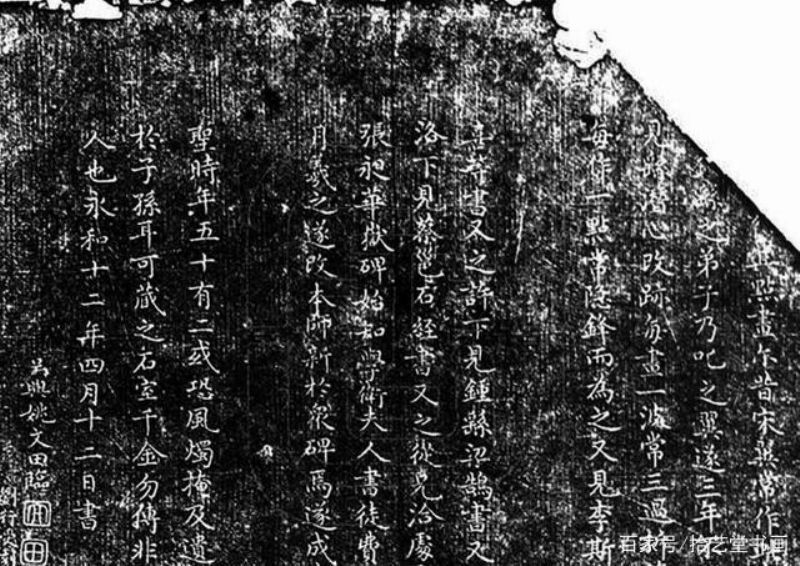 點畫尔昔宋翼常作
為之弟子乃叱之翼遂三年不
見即潛心改跡每畫一波常三過
每作一點常隱鋒而為之又見李斯
喜等書又之許下見鍾繇梁鵠書又
洛下見蔡邕石經書又之從兄洽處
張昶華嶽碑始知學衛夫人書徒費
月羲之遂改本師新於眾碑焉遂成
聖時年五十有二或恐風燭掩及遺
於子孫耳可蔵之石室千金勿傳非
人也永和十二年四月十二日書
吳興姚文田臨
百家号/拾艺堂书画